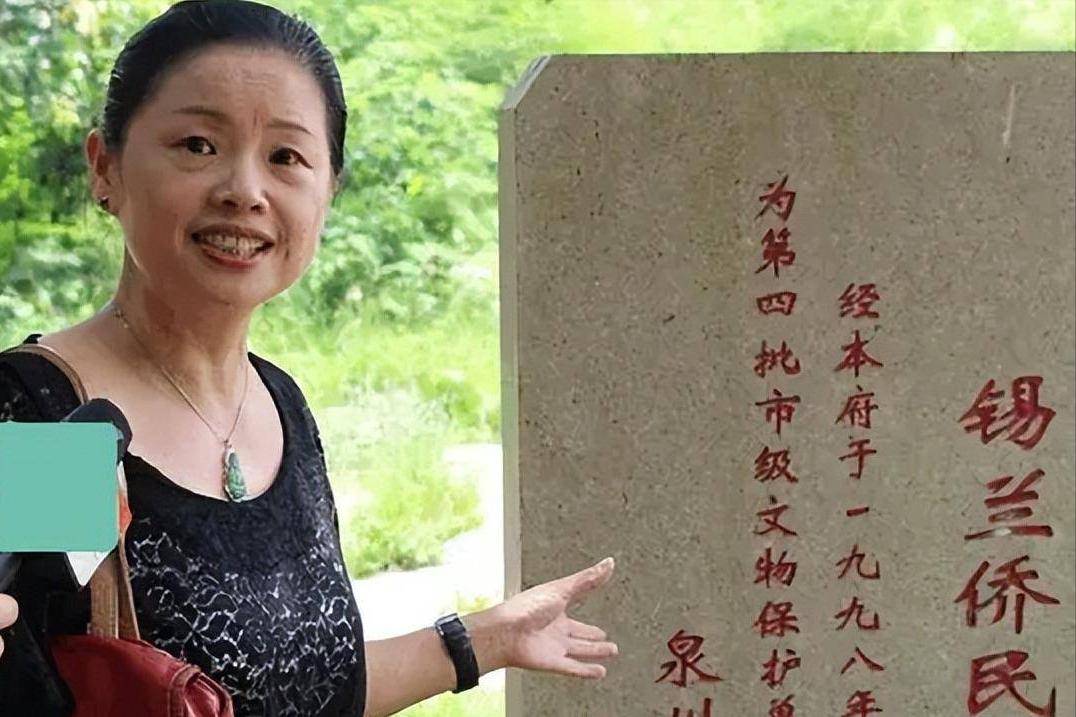 锡兰侨民
经本府于一九九八年
为第四批市级文物保护单
泉州